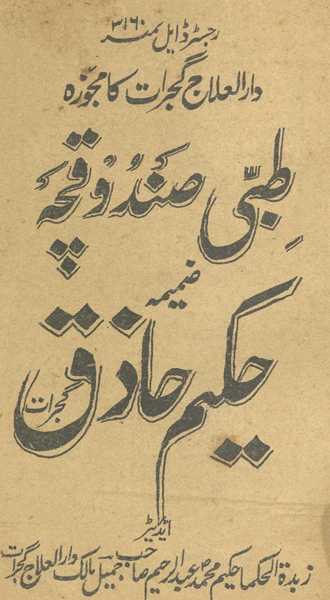 رجسٹرڈ ایل نمبر ۳۱۶۰
دارالعلاج گجرات کا مجوزہ
طِبّی صندُوقچہ
ضمیمہ
حکیم حاذق
گجرات
ایڈیٹر
زبدۃ الحکما حکیم محمد عبدالرحیم صاحب جمیل مالک دارالعلاج گجرات